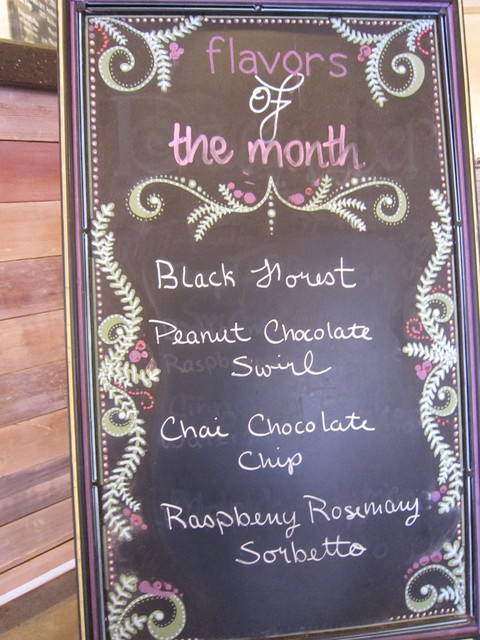 flavors
of
the month
Black Forest
Peanut Chocolate
Swirl
Chai Chocolate
Chip
Raspberry Rosemary
Sorbetto